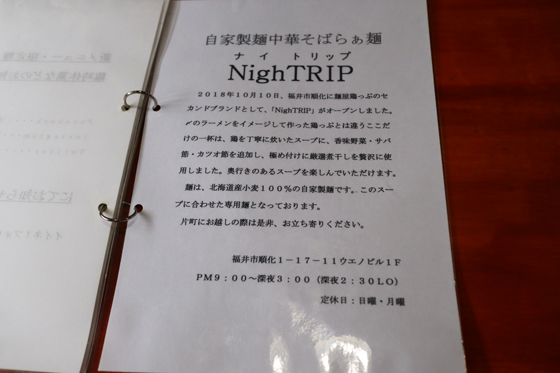 自家製麺中華そばらぁ麺
ナイトリップ
NighTRIP
2018年10月10日、福井市順化に麺屋鶏っぷのセ
カンドブランドとして、「NighTRIP」がオープンしました。
〆のラーメンをイメージして作った鶏っぷとは違うここだ
けの一杯は、鶏を丁寧に炊いたスープに、香味野菜・サバ
節・カツオ節を追加し、極め付けに厳選煮干しを贅沢に使
用しました。奥行きのあるスープを楽しんでいただけます。
麺は、北海道産小麦100%の自家製麺です。このスー
プに合わせた専用麺となっております。
片町にお越しの際は是非、お立ち寄りください。
福井市順化1-17-11ウエノビル1F
PM9:00~深夜3:00(深夜2:30LO)
定休日:日曜・月曜